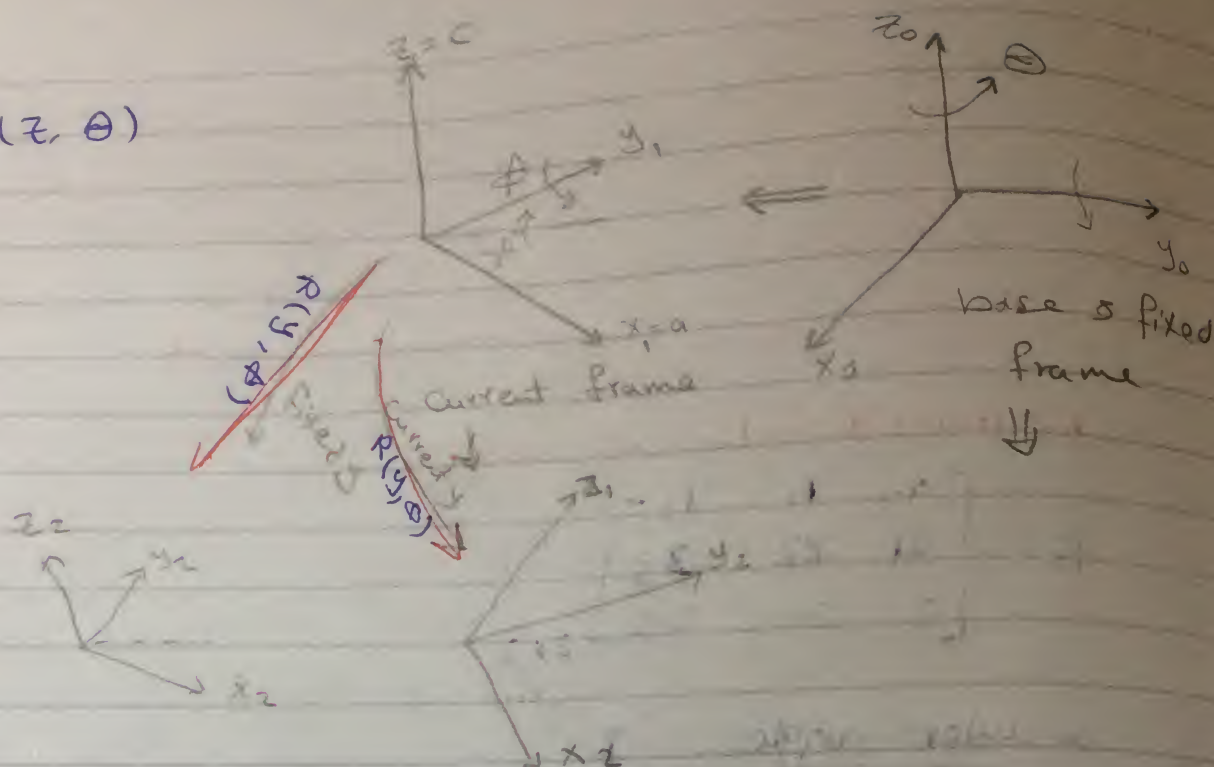 (Z, θ)
z₁ = c
y₁
x₁ = a
current frame
z₀
θ
y₀
x₀
base & fixed
frame
R(y, θ)
fixed
current
R(y, θ)
z₂
y₂
x₂
z₁
y₂
x₂